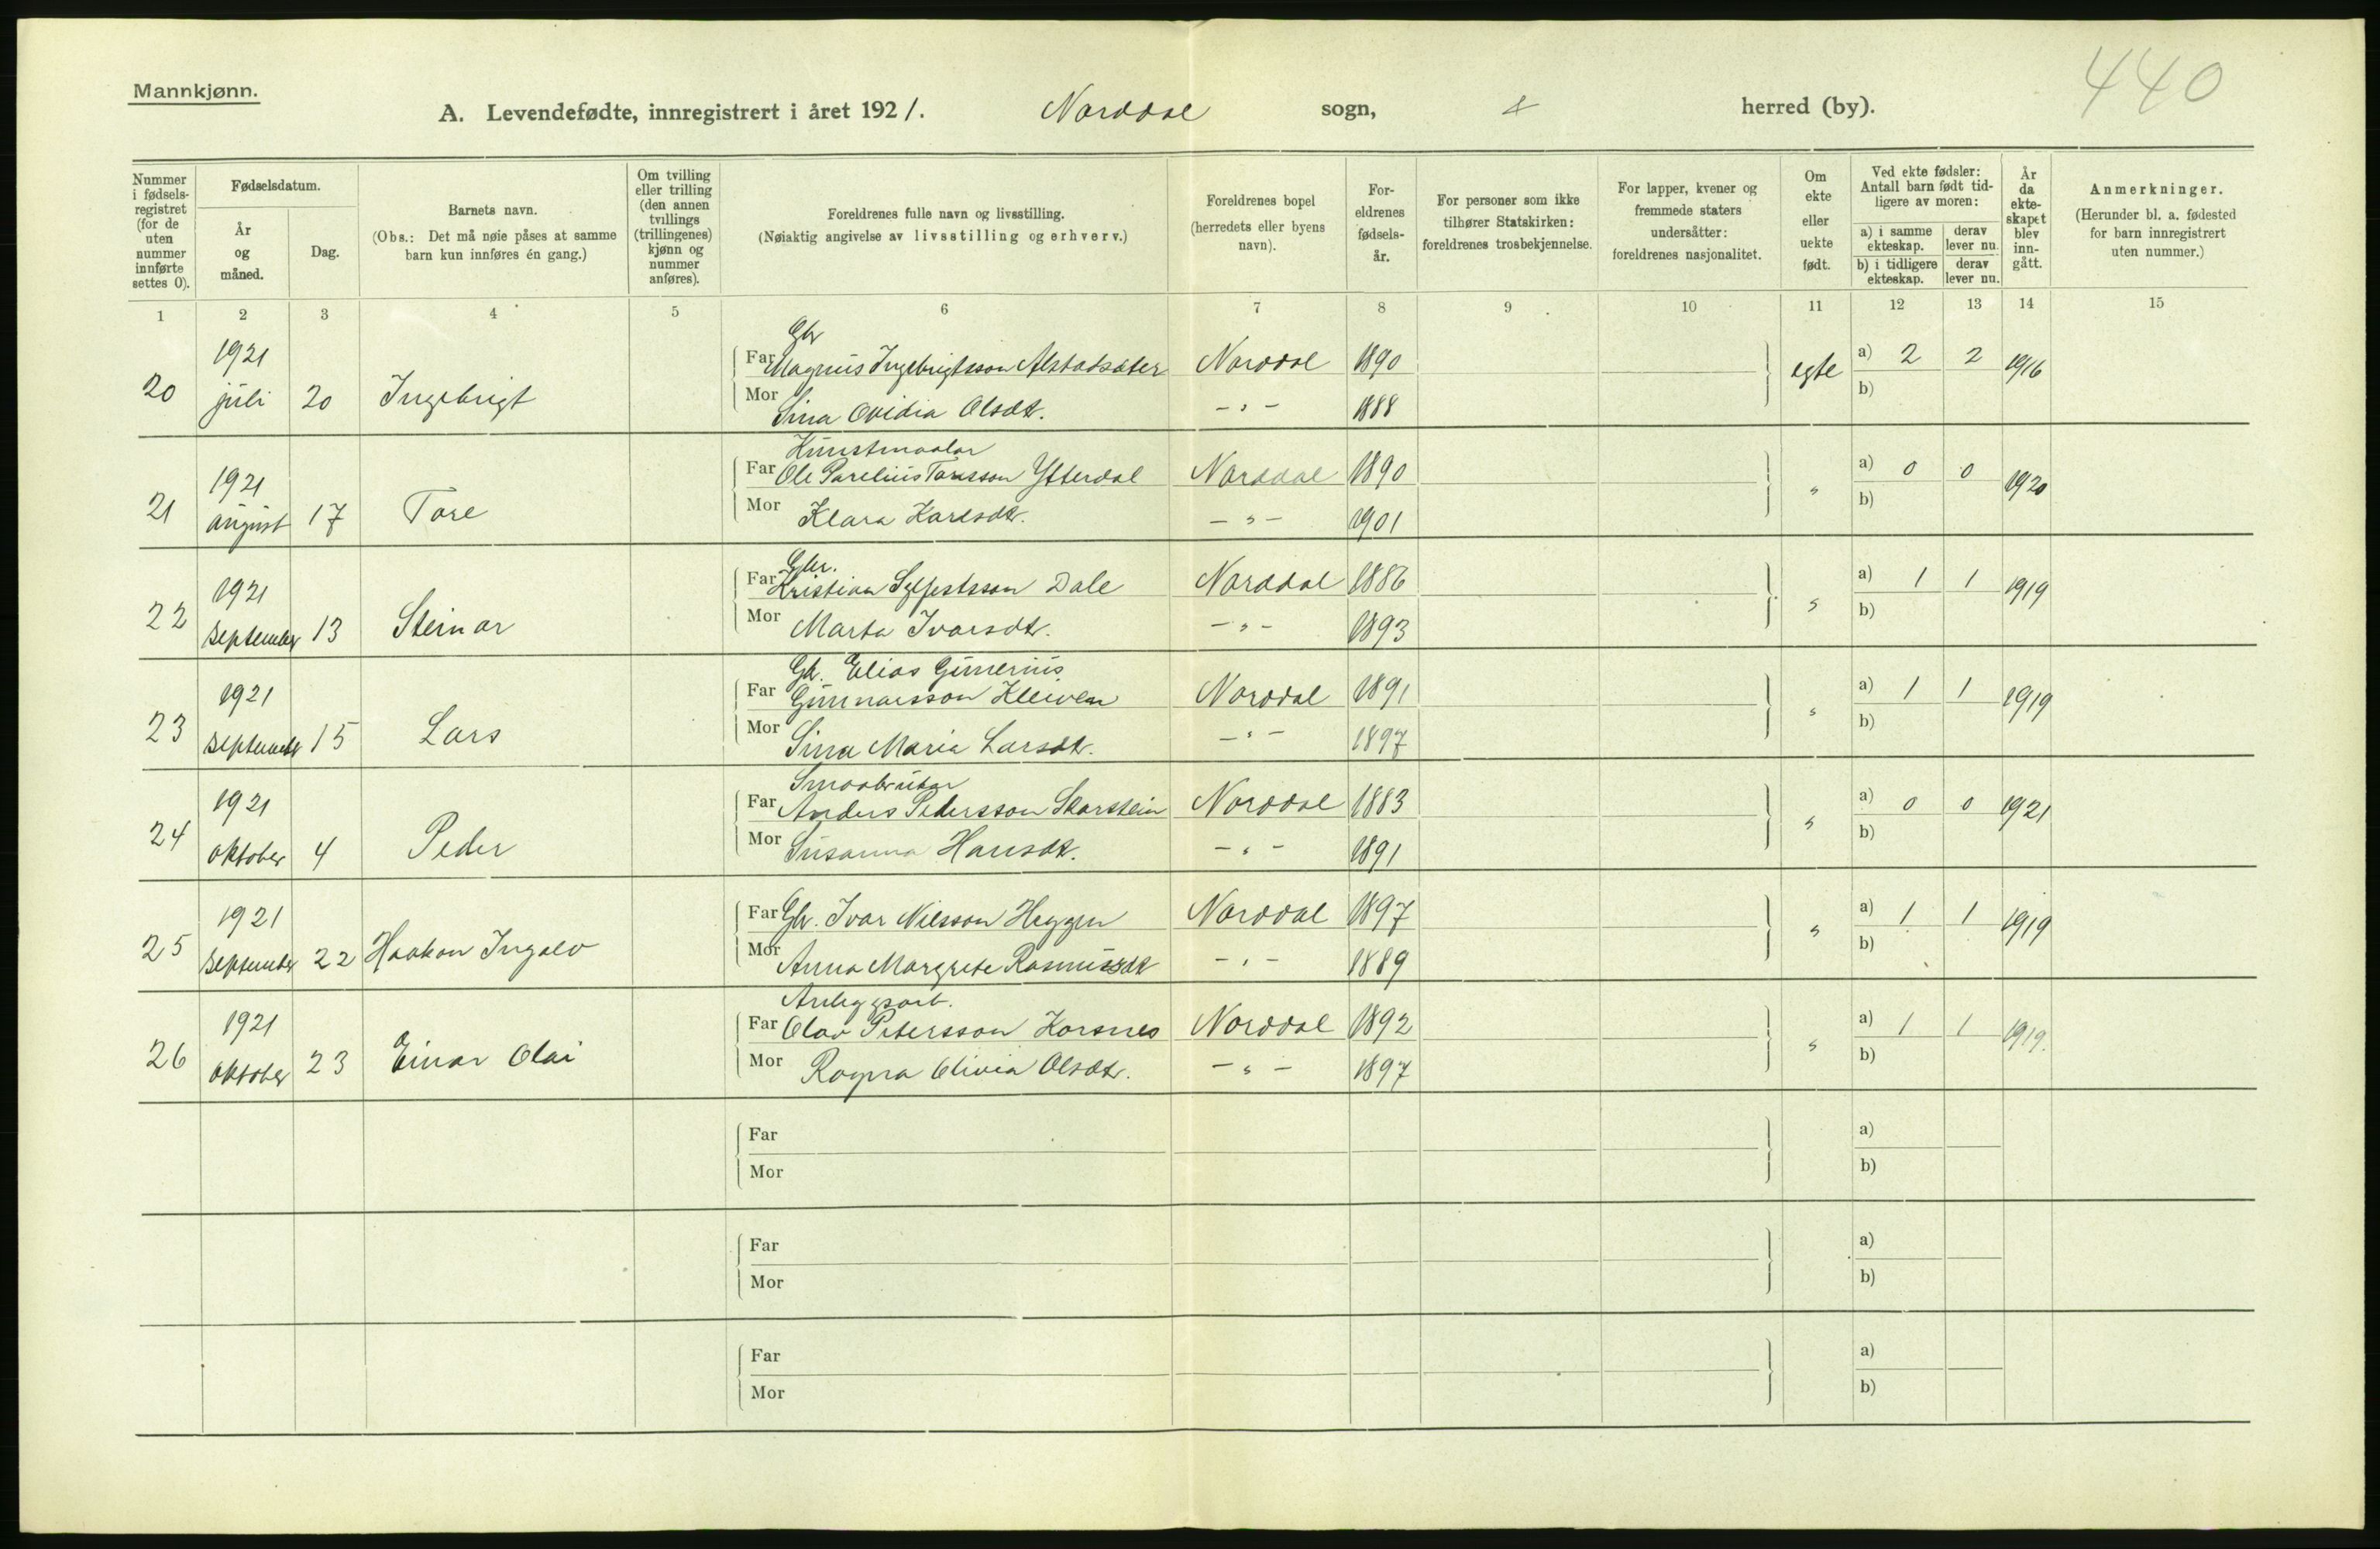 440
Mannkjønn.
A. Levendefødte, innregistrert i året 1921. Norddal sogn, herred (by).
Nummer i fødselsregistret (for de uten nummer innførte settes 0).
Fødselsdatum.
År og måned.
Dag.
Barnets navn.
(Obs.: Det må nøie påses at samme barn kun innføres én gang.)
Om tvilling eller trilling (den annen tvillings (trillingenes) kjønn og nummer anføres).
Foreldrenes fulle navn og livsstilling.
(Nøiaktig angivelse av livsstilling og erhverv.)
Foreldrenes bopel (herredets eller byens navn).
Foreldrenes fødselsår.
For personer som ikke tilhører Statskirken: foreldrenes trosbekjennelse.
For lapper, kvener og fremmede staters undersåtter: foreldrenes nasjonalitet.
Om ekte eller uekte født.
Ved ekte fødsler: Antall barn født tidligere av moren:
a) i samme ekteskap. derav lever nu.
b) i tidligere ekteskap. derav lever nu.
År da ekteskapet blev inngått.
Anmerkninger.
(Herunder bl. a. fødested for barn innregistrert uten nummer.)
1 2 3 4 5 6 7 8 9 10 11 12 13 14 15
Gbr
1921 Far Magnus Ingebrigtsson Alstadsæter Norddal 1890 egte a) 2 2 1916
20 juli 20 Ingebrigt Mor Sina Ovidia Olsdt. - " - 1888 b)
Kunstmaalar
1921 Far Ole Parelius Toresson Ytterdal Norddal 1890 " a) 0 0 1920
21 august 17 Tore Mor Klara Karlsdt. - " - 1901 b)
Gbr.
1921 Far Kristian Sylfestsson Dale Norddal 1886 " a) 1 1 1919
22 september 13 Steinar Mor Marta Ivarsdt. - " - 1893 b)
Gbr. Elias Gunerius
1921 Far Gunnarsson Kleiven Norddal 1891 " a) 1 1 1919
23 september 15 Lars Mor Sina Maria Larsdt. - " - 1897 b)
Smaabrukar
1921 Far Anders Pedersson Skarstein Norddal 1883 " a) 0 0 1921
24 oktober 4 Peder Mor Susanna Hansdt. - " - 1891 b)
1921 Far Gbr. Ivar Nilsson Heggen Norddal 1897 " a) 1 1 1919
25 september 22 Haakon Ingolv Mor Anna Margrete Rasmusdt - " - 1889 b)
Anleggsarb.
1921 Far Olav Petersson Korsnes Norddal 1892 " a) 1 1 1919.
26 oktober 23 Einar Olai Mor Ragna Olivia Olsdt. - " - 1897 b)
Far a)
Mor b)
Far a)
Mor b)
Far a)
Mor b)